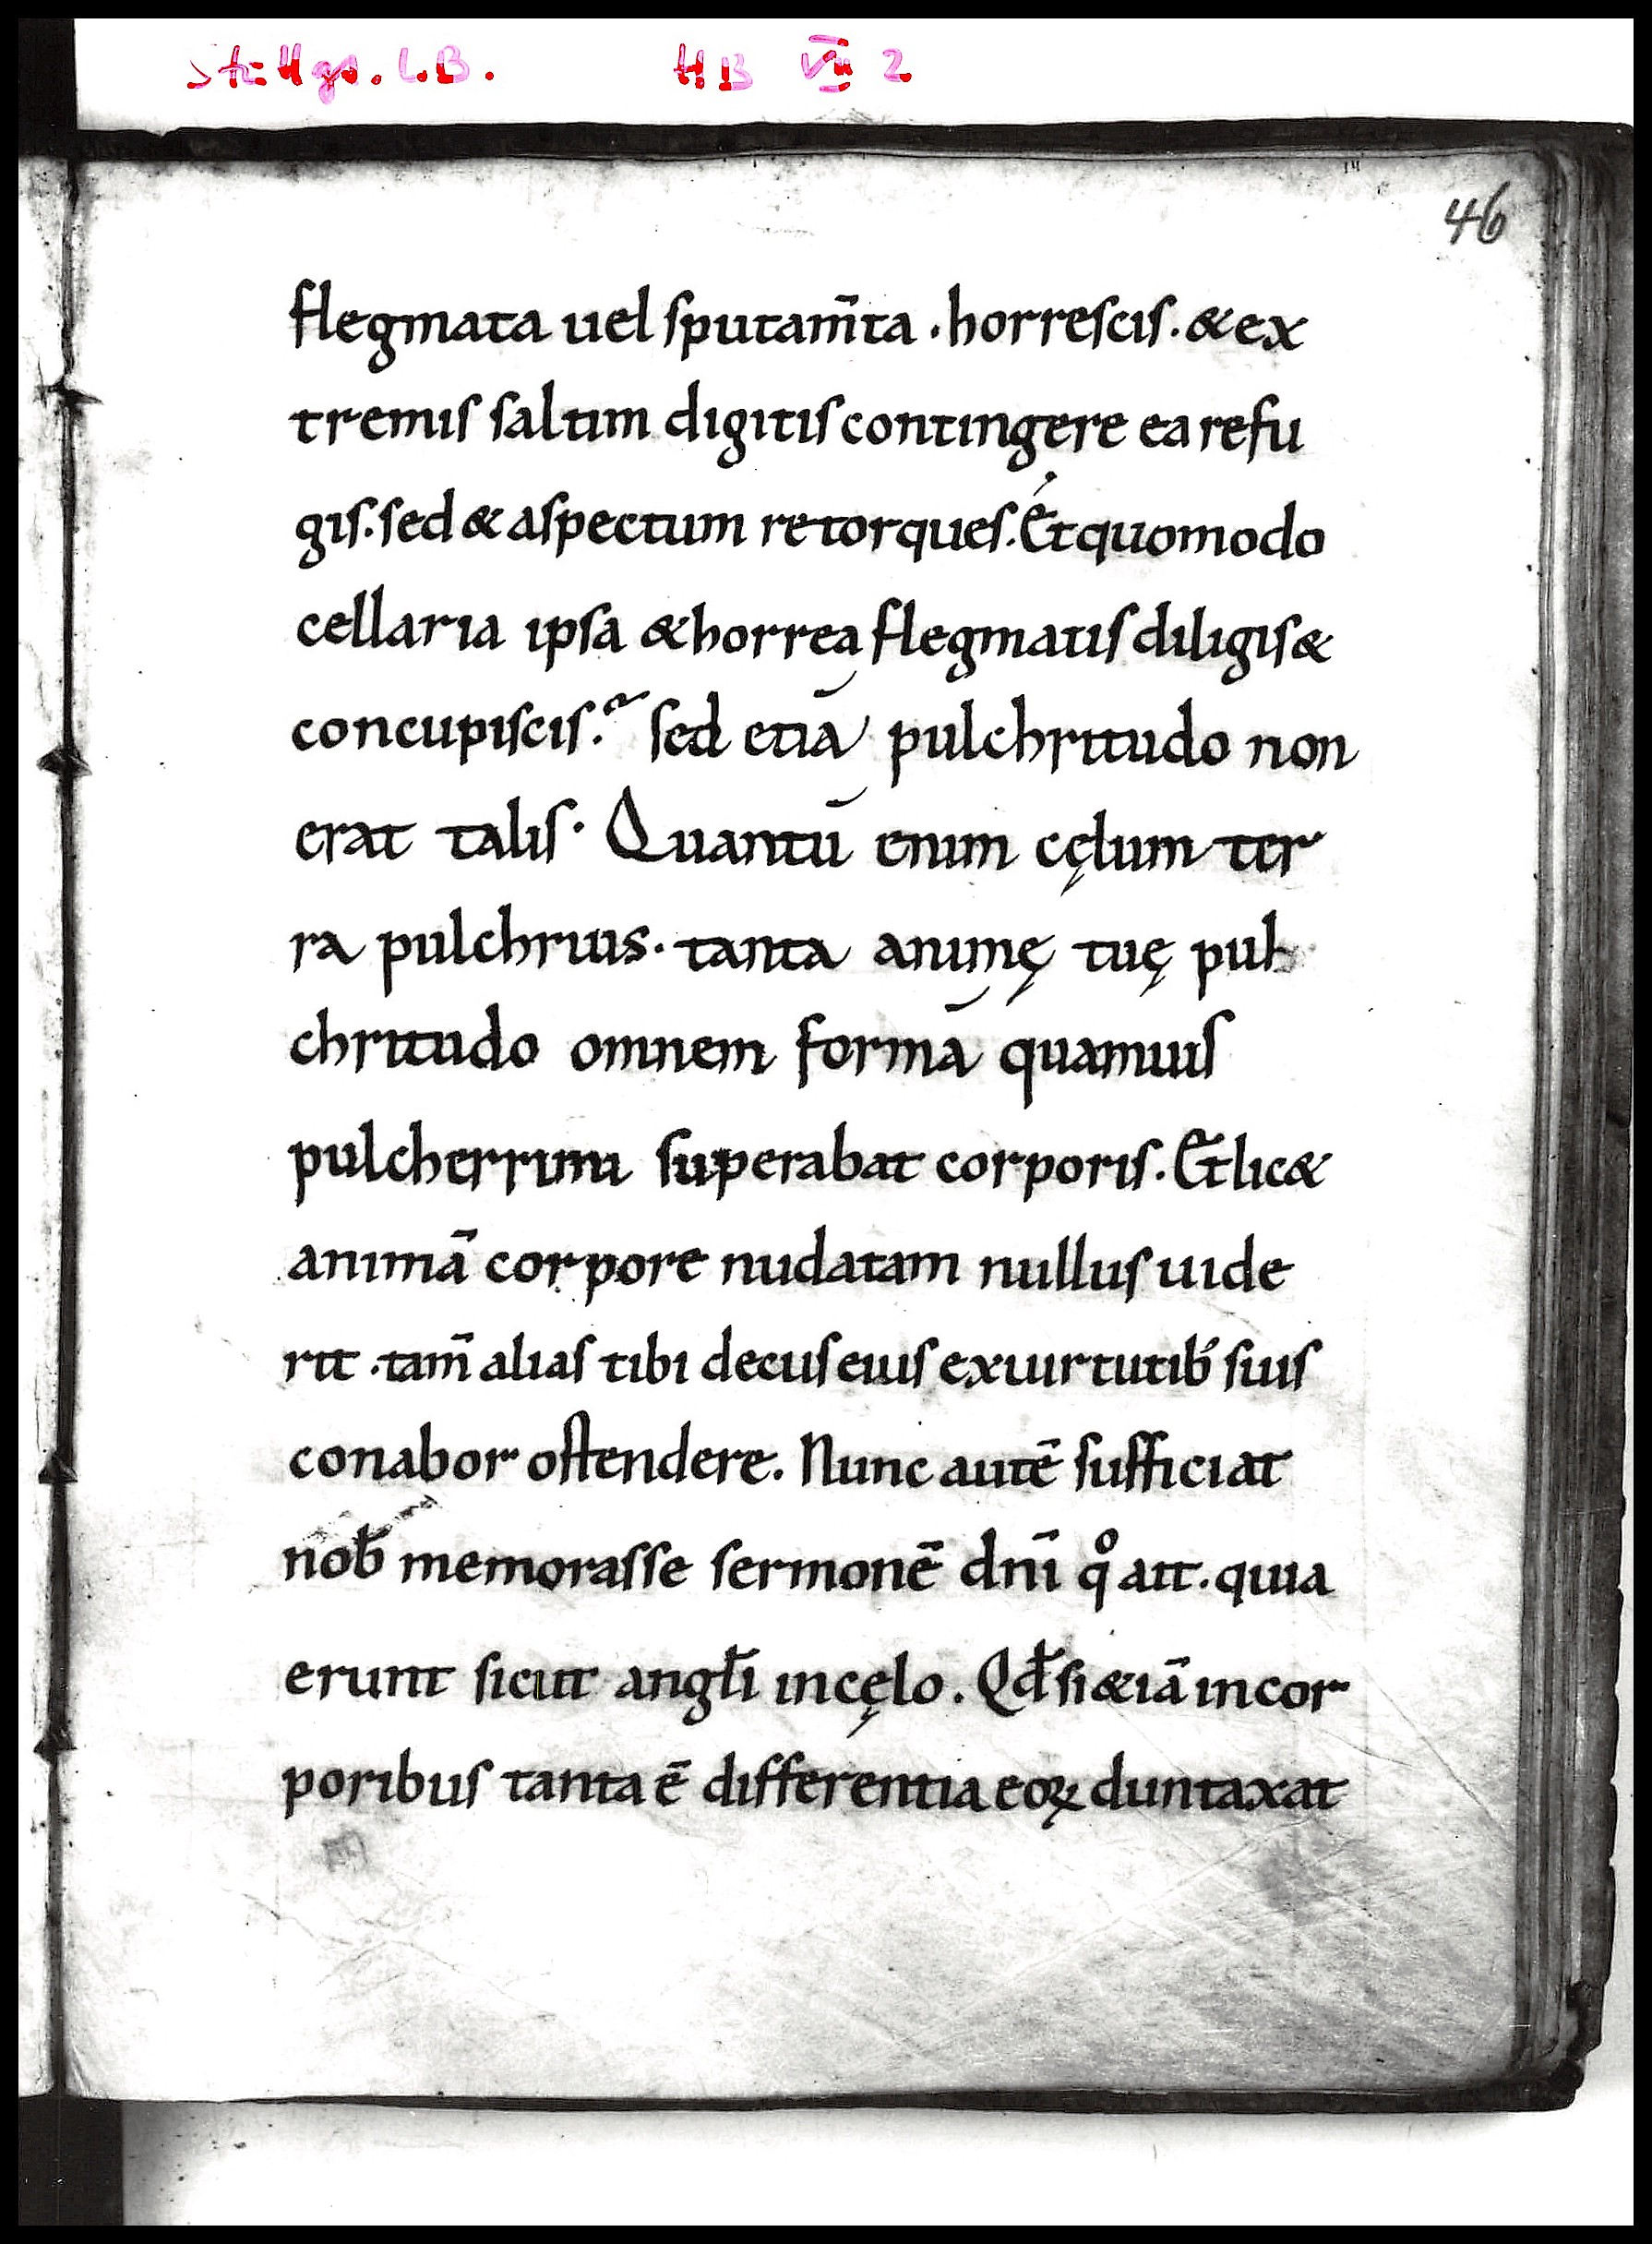 Stuttgt. L.B. HB VII 2
46
flegmata uel sputam̄ta · horrescis · & ex
tremis saltim digitis contingere ea refu
gis · sed & aspectum retorques. Et quomodo
cellaria ipsa & horrea flegmatis diligis &
concupiscis? sed etiā pulchritudo non
erat talis · Quantū enim cęlum ter
ra pulchrius · tanta animę tuę pul
chritudo omnem formā quamuis
pulcherrimi superabat corporis. Et lic&
animā corpore nudatam nullus uide
rit · tam̄ alias tibi decus eius ex uirtutib; suis
conabor ostendere. Nunc autē sufficiat
nob̄ memorasse sermonē dn̄i qͦ ait · quia
erunt sicut angl̄i in cęlo. Qđ si &iā in cor
poribus tanta ē differentia eoꝝ duntaxat